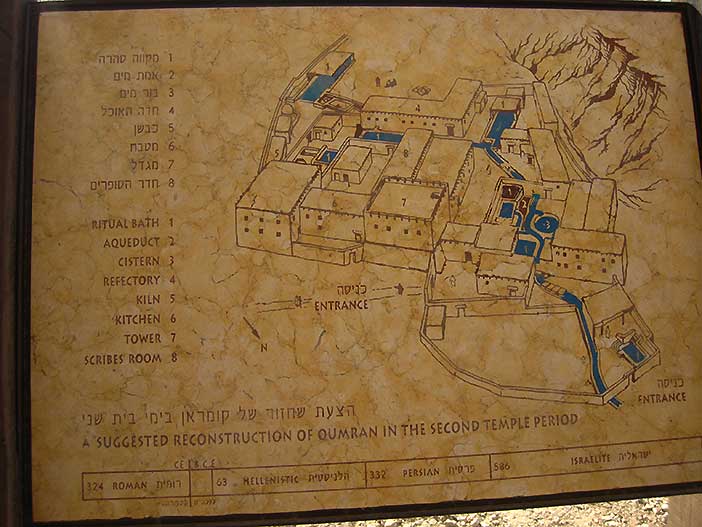 1 מקווה טהרה
2 אמת מים
3 בור מים
4 חדר האוכל
5 כבשן
6 מטבח
7 מגדל
8 חדר הסופרים
RITUAL BATH 1
AQUEDUCT 2
CISTERN 3
REFECTORY 4
KILN 5
KITCHEN 6
TOWER 7
SCRIBES ROOM 8
4
8
7
5
כניסה
ENTRANCE
N
כניסה
ENTRANCE
הצעת שחזור של קומראן בימי בית שני
A SUGGESTED RECONSTRUCTION OF QUMRAN IN THE SECOND TEMPLE PERIOD
CE BCE
324 ROMAN רומית 63 HELLENISTIC הלניסטית 332 PERSIAN פרסית 586 ISRAELITE ישראלית